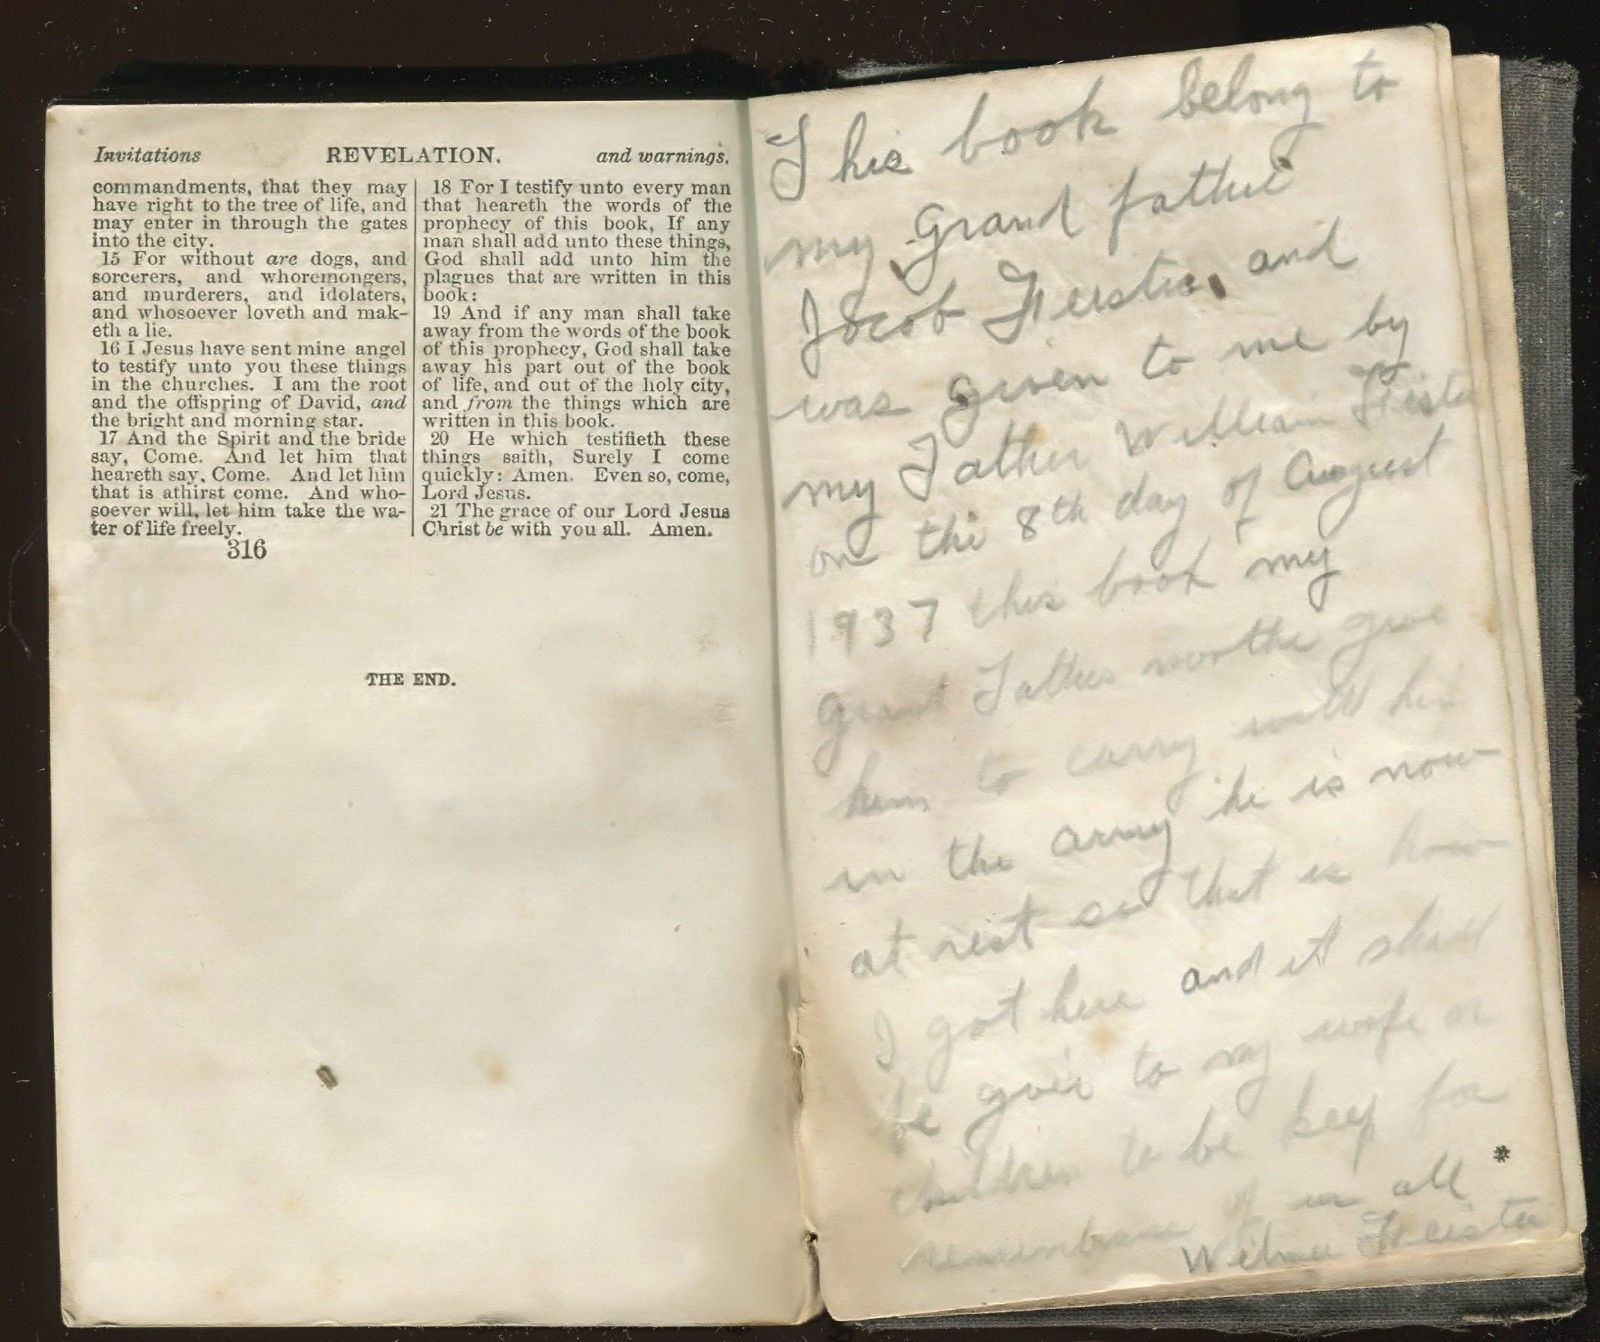 Invitations REVELATION. and warnings.
commandments, that they may
have right to the tree of life, and
may enter in through the gates
into the city.
15 For without are dogs, and
sorcerers, and whoremongers,
and murderers, and idolaters,
and whosoever loveth and mak-
eth a lie.
16 I Jesus have sent mine angel
to testify unto you these things
in the churches. I am the root
and the offspring of David, and
the bright and morning star.
17 And the Spirit and the bride
say, Come. And let him that
heareth say, Come. And let him
that is athirst come. And who-
soever will, let him take the wa-
ter of life freely.
316
18 For I testify unto every man
that heareth the words of the
prophecy of this book, If any
man shall add unto these things,
God shall add unto him the
plagues that are written in this
book:
19 And if any man shall take
away from the words of the book
of this prophecy, God shall take
away his part out of the book
of life, and out of the holy city,
and from the things which are
written in this book.
20 He which testifieth these
things saith, Surely I come
quickly: Amen. Even so, come,
Lord Jesus.
21 The grace of our Lord Jesus
Christ be with you all. Amen.
THE END.
This book belong to
my grand father
Jacob Feister and
was given to me by
my Father William Feister
on the 8th day of August
1937 this book my
grand Father mother give
him to carry with him
in the army he is now
at rest so that is how
I got here and it shall
be given to my wife or
children to be keep for
remembrance of us all
Wilmer Feister